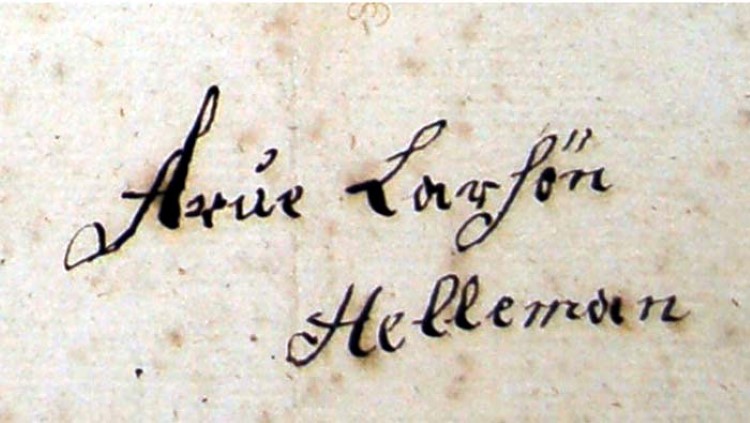 Arūe Larsön
Helleman